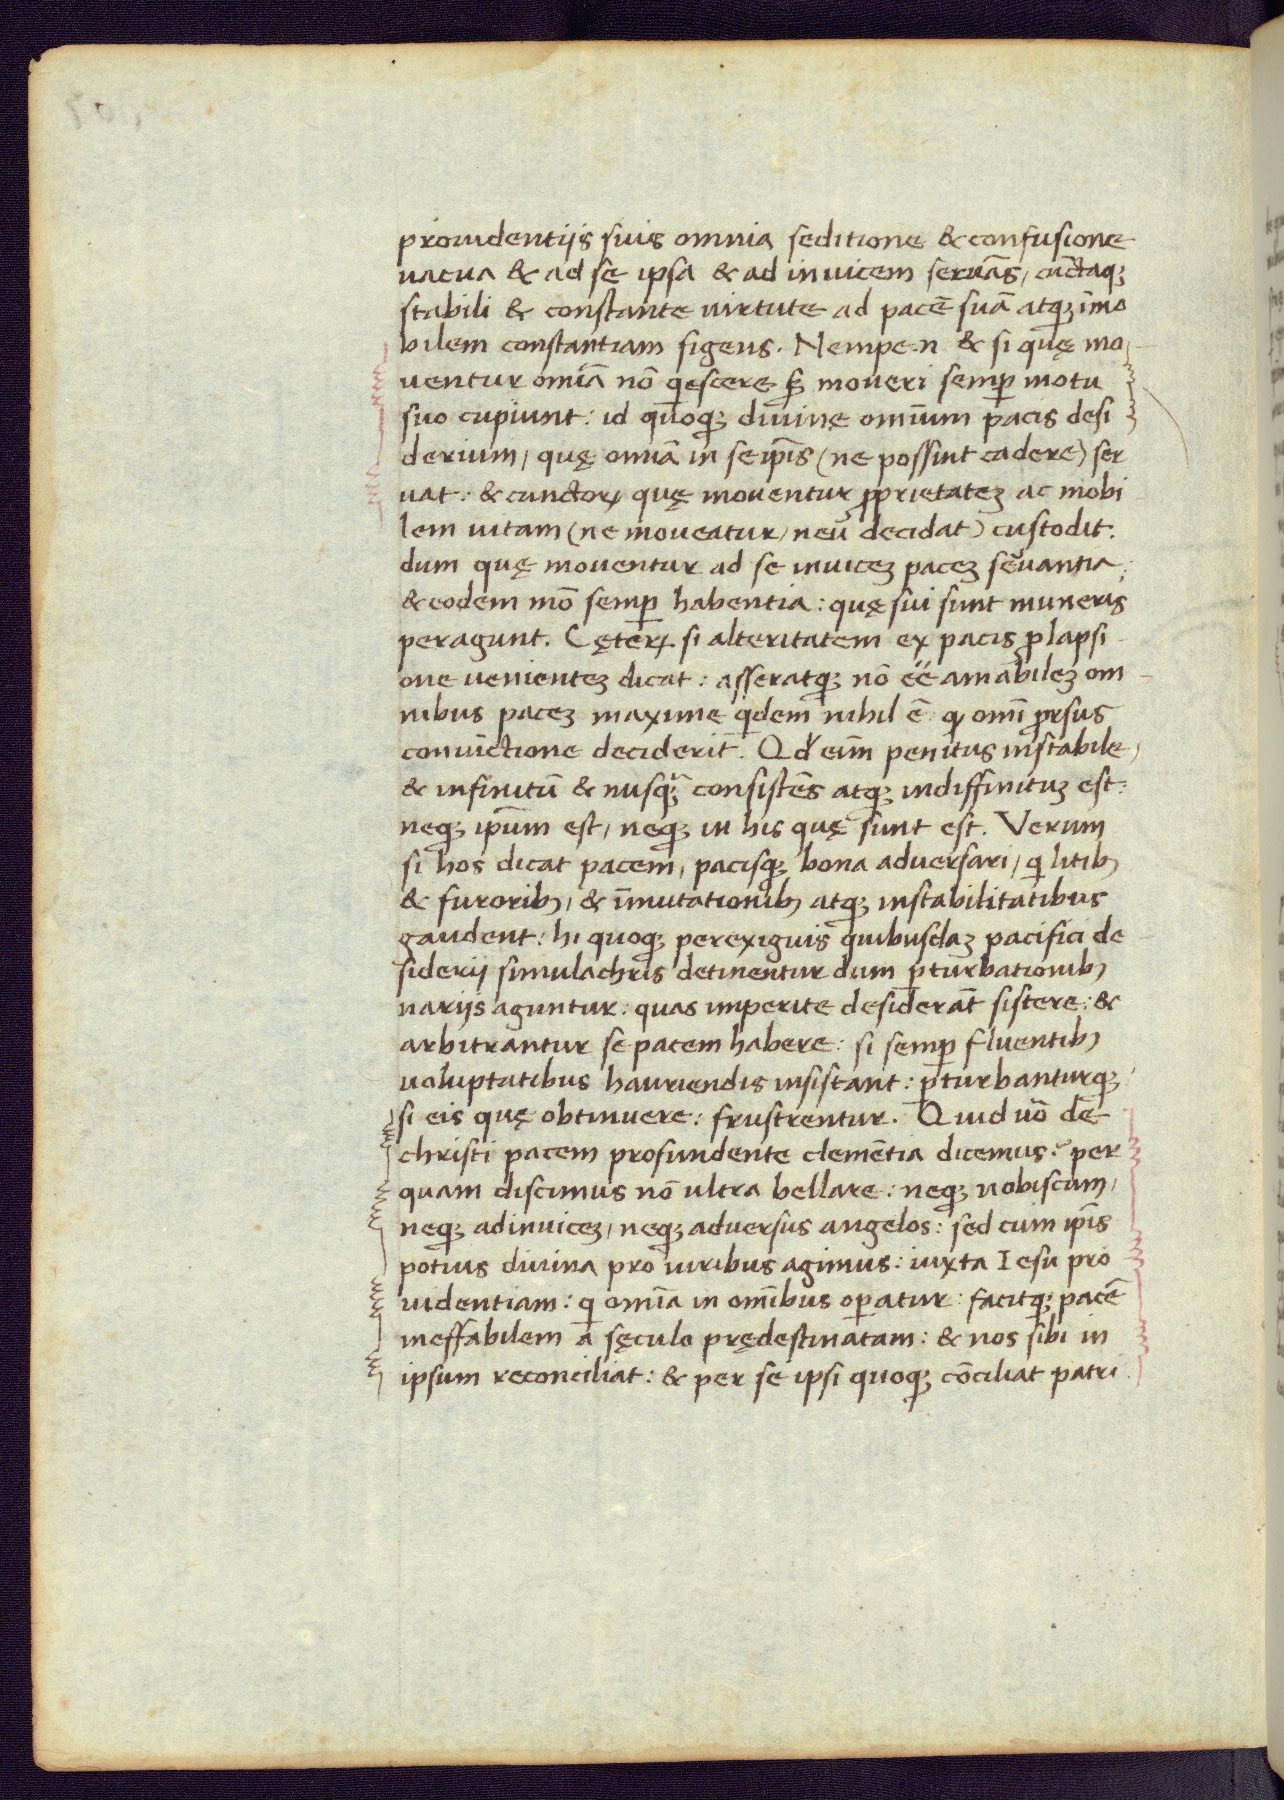 prouidentijs suis omnia seditione & confusione
uacua & ad se ipsa & ad inuicem seruãs, cũctaq;
stabili & constante uirtute ad pacẽ suã atq; ĩmo
bilem constantiam figens. Nempe .n. & si quę mo
uentur omĩa nõ qescere, sȝ moueri semꝑ motu
suo cupiunt: id quoq; diuinę omĩum pacis desi
derium, quę omĩa in seip̃is (ne possint cadere) ser
uat: & cunctoꝝ quę mouentur ꝓprietateȝ ac mobi
lem uitam (ne moueatur, neu decidat) custodit.
dum quę mouentur ad se inuiceȝ paceȝ seruantia,
& eodem mõ semꝑ habentia: quę sui sunt muneris
peragunt. Cęteꝝ si alteritatem ex pacis ꝓlapsi
one uenienteȝ dicat: asseratq; nõ eẽ amabileȝ om
nibus paceȝ maxime qdem nihil ẽ qꝫ omĩ ꝓrsus
conuictione deciderit. Qd̓ eĩm penitus instabile,
& infinitũ & nusq̃; consistẽs atq; indiffinituȝ est:
neq; ip̃um est, neq; in his quę sunt est. Verum
si hos dicat pacem, pacisq; bona aduersari, q litib;
& furorib;, & ĩmutationib; atq; instabilitatibus
gaudent: hi quoq; perexiguis quibusdaȝ pacifici de
siderij simulachris detinentur dum ꝑturbationib;
uarijs aguntur: quas imperite desiderãt sistere: &
arbitrantur se pacem habere: si semꝑ fluentib;
uoluptatibus hauriendis insistant: ꝑturbanturq;
si eis quę obtinuere: frustrentur. Quid uõ de
christi pacem profundente clemẽtia dicemus? per
quam discimus nõ ultra bellare: neq; nobiscum,
neq; adinuiceȝ, neq; aduersus angelos: sed cum ip̃is
potius diuina pro uiribus agimus: iuxta Iesu pro
uidentiam: q omĩa in omĩbus oꝑatur: facitq; pacẽ
ineffabilem a sęculo prędestinatam: & nos sibi in
ipsum reconciliat: & per se ipsi quoq; cõciliat patri